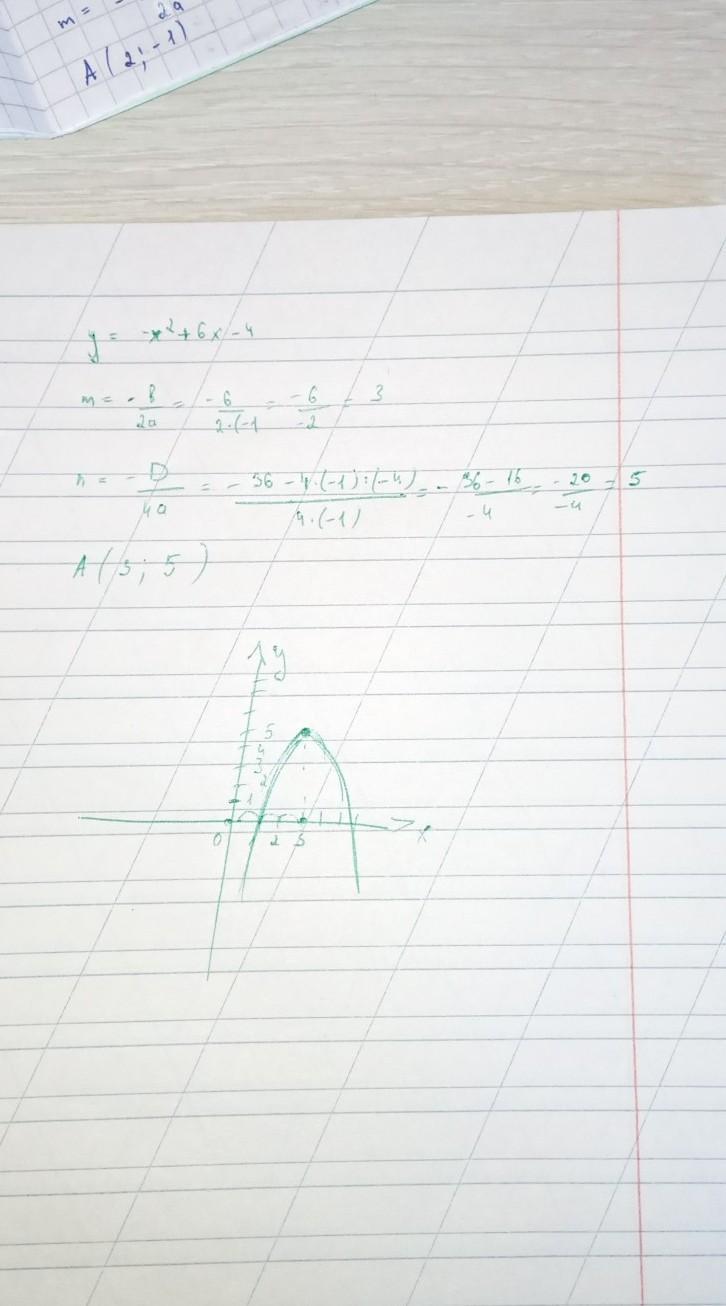 m = -
2a
A(2; -1)
y = -x² + 6x - 4
m = - b/2a = - 6/2·(-1 = - 6/-2 = 3
n = - D/4a = - 36 - 4·(-1)·(-4)/4·(-1) = - 36 - 16/-4 = - 20/-4 = 5
A(3; 5)
y
5
4
3
2
1
0 1 2 3 x